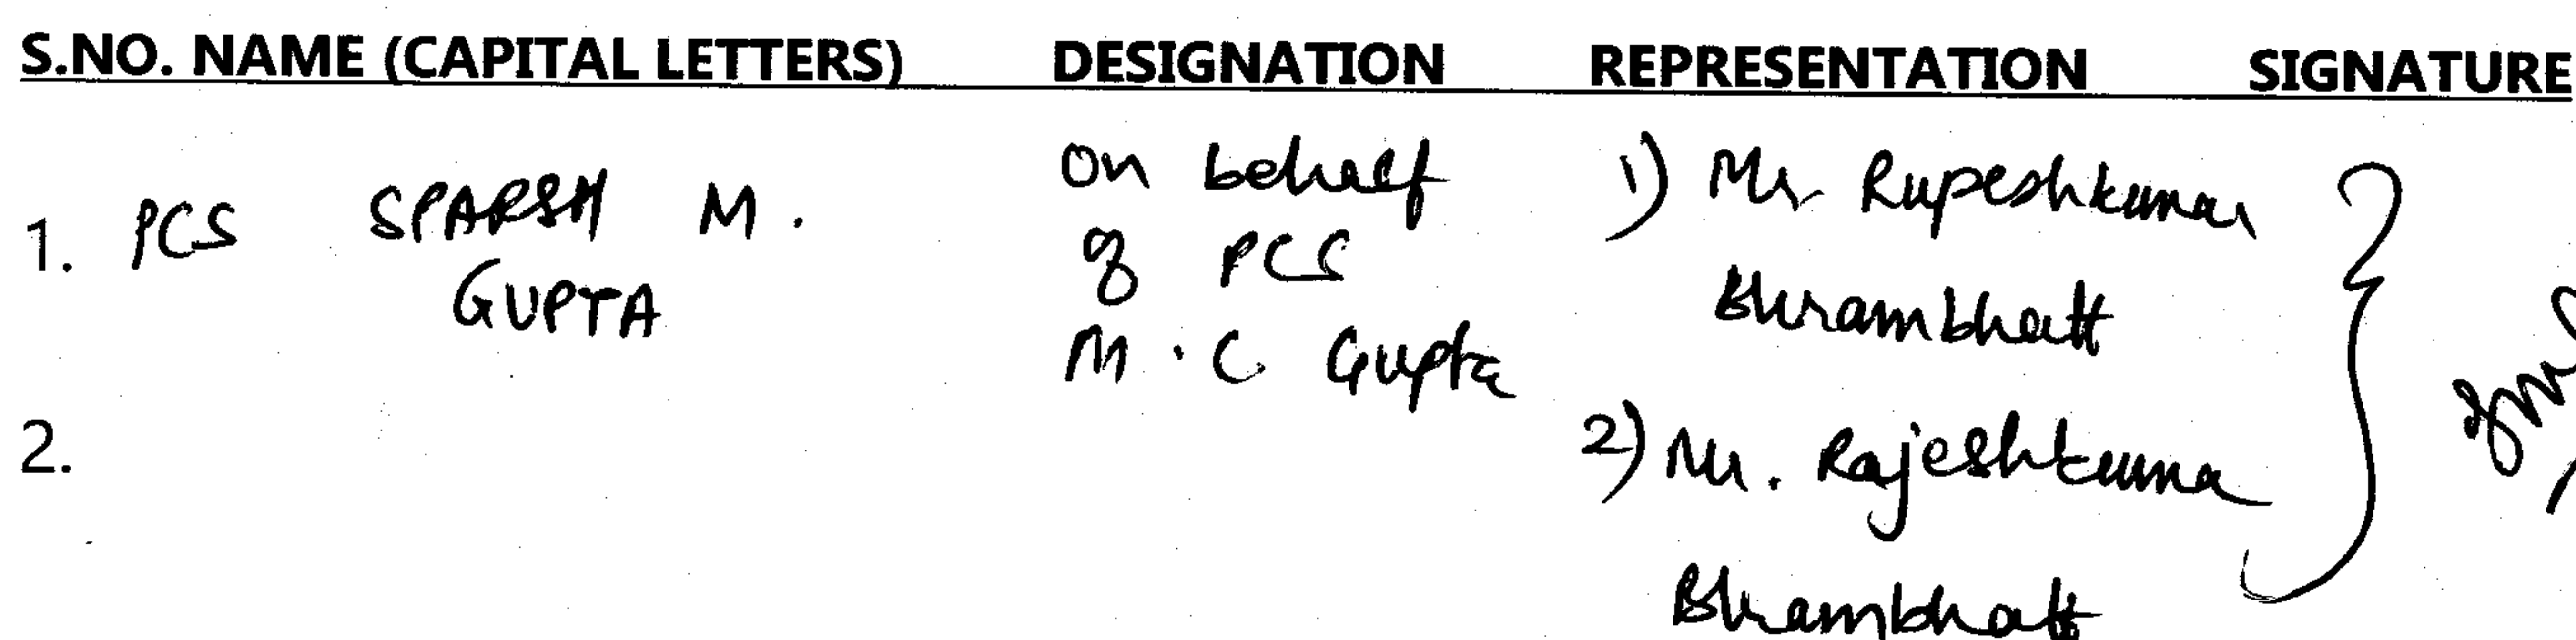 S.NO. NAME (CAPITAL LETTERS) DESIGNATION REPRESENTATION SIGNATURE
1. PCS SPARSH M.
GUPTA
on behalf
of PCS
M. C Gupta
1) Mr Rupeshkumar
Bhrambhatt
2.
2) Mr. Rajeshkuma
Bhrambhatt